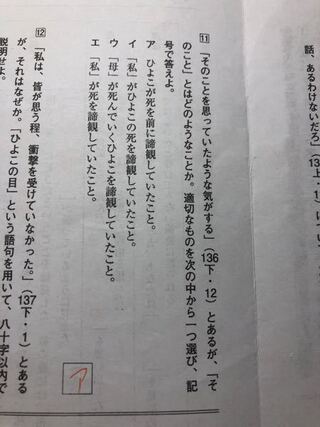 話、あるわけないだろ」
11 「そのことを思っていたような気がする」(136下・12)とあるが、「そ
のこと」とはどのようなことか。適切なものを次の中から一つ選び、記
号で答えよ。
ア ひよこが死を前に諦観していたこと。
イ 「私」がひよこの死を諦観していたこと。
ウ 「母」が死んでいくひよこを諦観していたこと。
エ 「私」が死を諦観していたこと。
ア
12 「私は、皆が思う程、衝撃を受けていなかった。」(137下・1)とある
が、それはなぜか。「ひよこの目」という語句を用いて、八十字以内で
説明せよ。